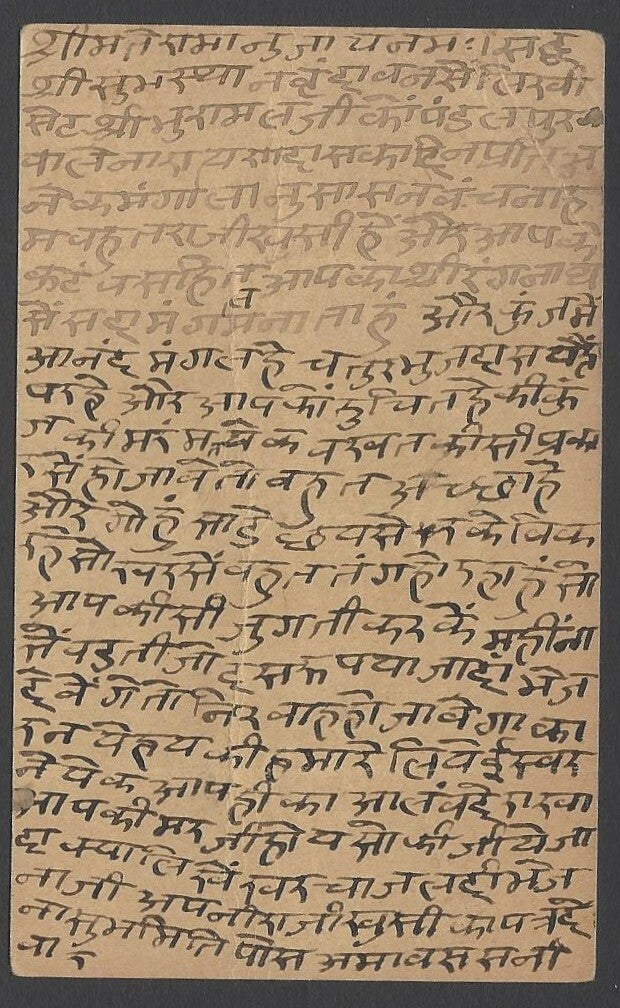 श्रीमते रामानुजायनमः। सिद्ध
श्री सुभस्थान वृंदावन सें लिखी
सेठ श्री मुरामलजी कों पंडलपुर
वाले नारायरणदास का हित प्रीत अ
नेक मंगालानुसासन वंचना ह
म बहुत राजी खुसी हैं और आप के
कुटंब सहित आप का श्री रंगनाथ
सें सदा मंगल मनाता हुं और कुंज में
आनंद मंगल है चतुरभुजदास यहां
पर है और आप कों उचित है की कुं
ज की मरंमत येक वखत कीसी प्रका
र सें हो जावे तो बहुत अच्छा है
और गोहुं साडे छय सेर के विक
रहे सो खरसें बहुत तंग हो रहा हुं सो
आप कीसी जुगती कर कें महींना
सें पडती जो दस रुपया जादां भेज
देवेंगे तो निरवाह हो जावेगा का
रन येह य की हमारे लिये ईस्वर
ने येक आप ही का आलंब दे राखा
आप की मरजी होय सो कीजीये जा
दा क्या लिखें खरचा जलदी भेज
ना जी अपनी राजी खुसी का पत्र दे
ना सुभ मिति पोस अंमावस सनी
वार